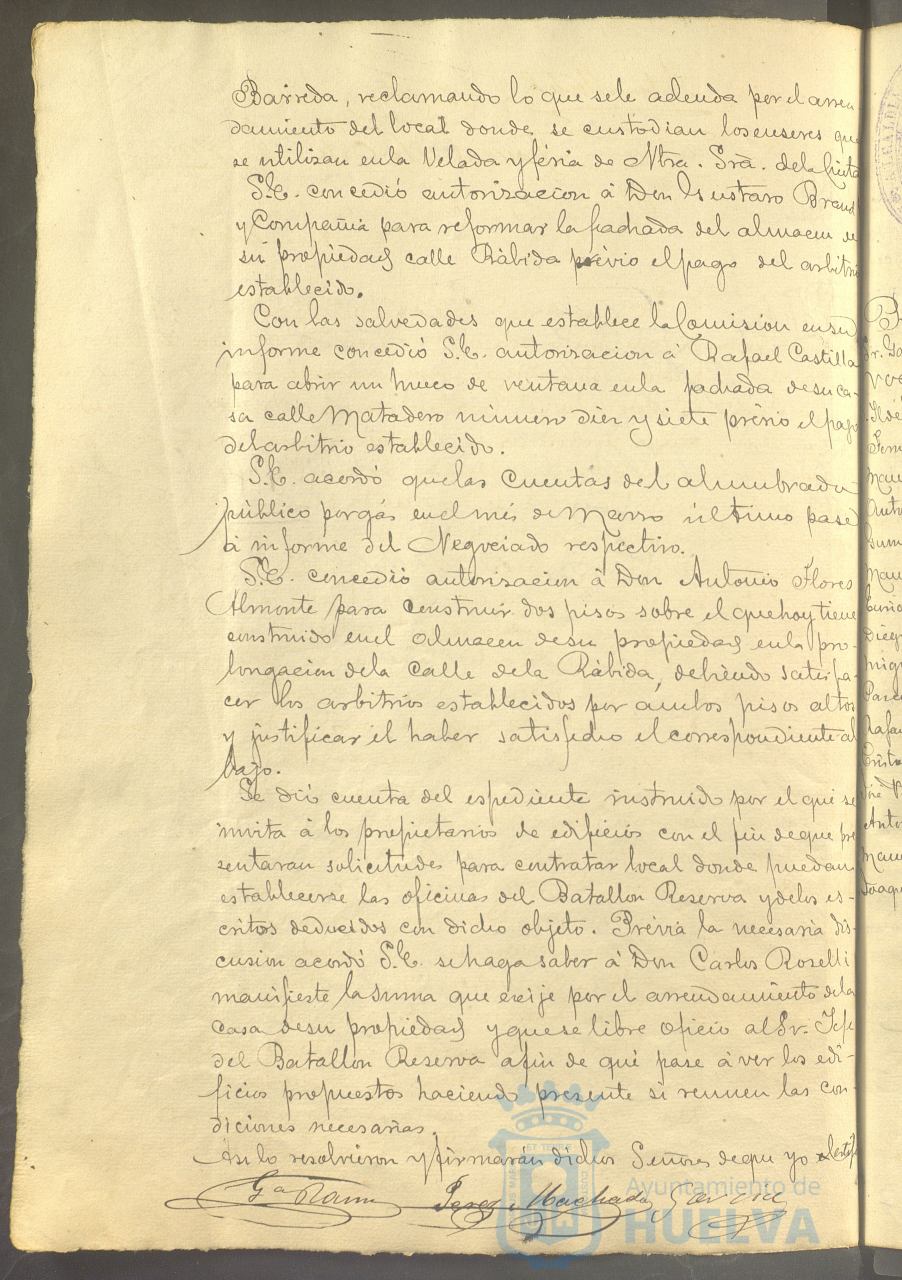 Barreda, reclamando lo que sele adeuda por el arren
damiento del local donde se custodian los enseres que
se utilizan enla Velada y féria de Ntra. Sra. dela Cinta
S.E. concedió autorizacion á Don Gustavo Brandt
y Compañia para reformar la fachada del almacen de
su propiedad calle Rábida prévio el pago del arbitrio
establecido.
Con las salvedades que establece la Comision ensu
informe concedió S.E. autorizacion á Rafael Castilla
para abrir un hueco de ventana enla fachada desu ca-
sa calle Matadero número diez y siete prévio el pago
del arbitrio establecido.
S.E. acordó quelas cuentas del alumbrado
público porgás enel més de Marzo último pase
á informe del Negociado respectivo.
S.E. concedió autorizacion á Don Antonio Flores
Almonte para construir dos pisos sobre el quehoy tiene
construido enel almacen desu propiedad enla pro-
longacion dela calle dela Rábida, debiendo satisfa-
cer los arbitrios establecidos por ambos pisos altos
y justificar el haber satisfecho el correspondiente al
bajo.
Se dió cuenta del espediente instruido por el que se
invita á los propietarios de edificios con el fin deque pre
sentaran solicitudes para contratar local donde puedan
establecerse las oficinas del Batallon Reserva y delos es-
critos deducidos con dicho objeto. Prévia la necesaria dis-
cusion acordó S.E. sehaga saber á Don Carlos Roselli
manifieste la suma que exije por el arrendamiento dela
casa desu propiedad y quese libre oficio al Sr. Jefe
del Batallon Reserva afin de qué pase á ver los edi-
ficios propuestos haciendo presente si reunen las con-
diciones necesarias.
Asi lo resolvieron y firmarán dichos Señores deque yo Certif
Gª Ramos Perez Machado
Ayuntamiento de
HUELVA